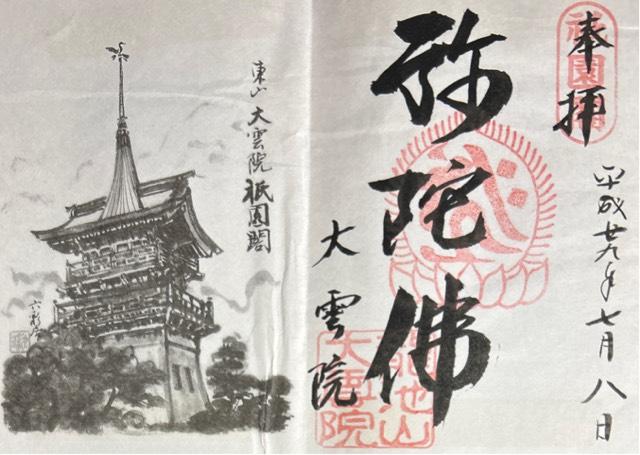 祇園閣
奉拝
平成廿九年七月八日
弥陀佛
大雲院
龍池山
大雲院
東山 大雲院 祇園閣